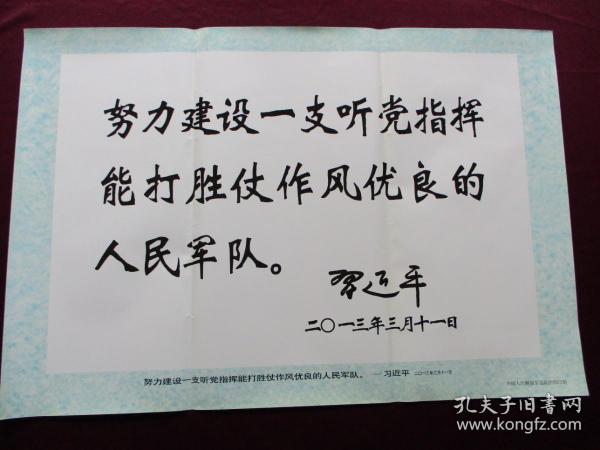 努力建设一支听党指挥
能打胜仗作风优良的
人民军队。
习近平
二〇一三年三月十一日
努力建设一支听党指挥能打胜仗作风优良的人民军队。 ——习近平 二〇一三年三月十一日
孔夫子旧书网
www.kongfz.com